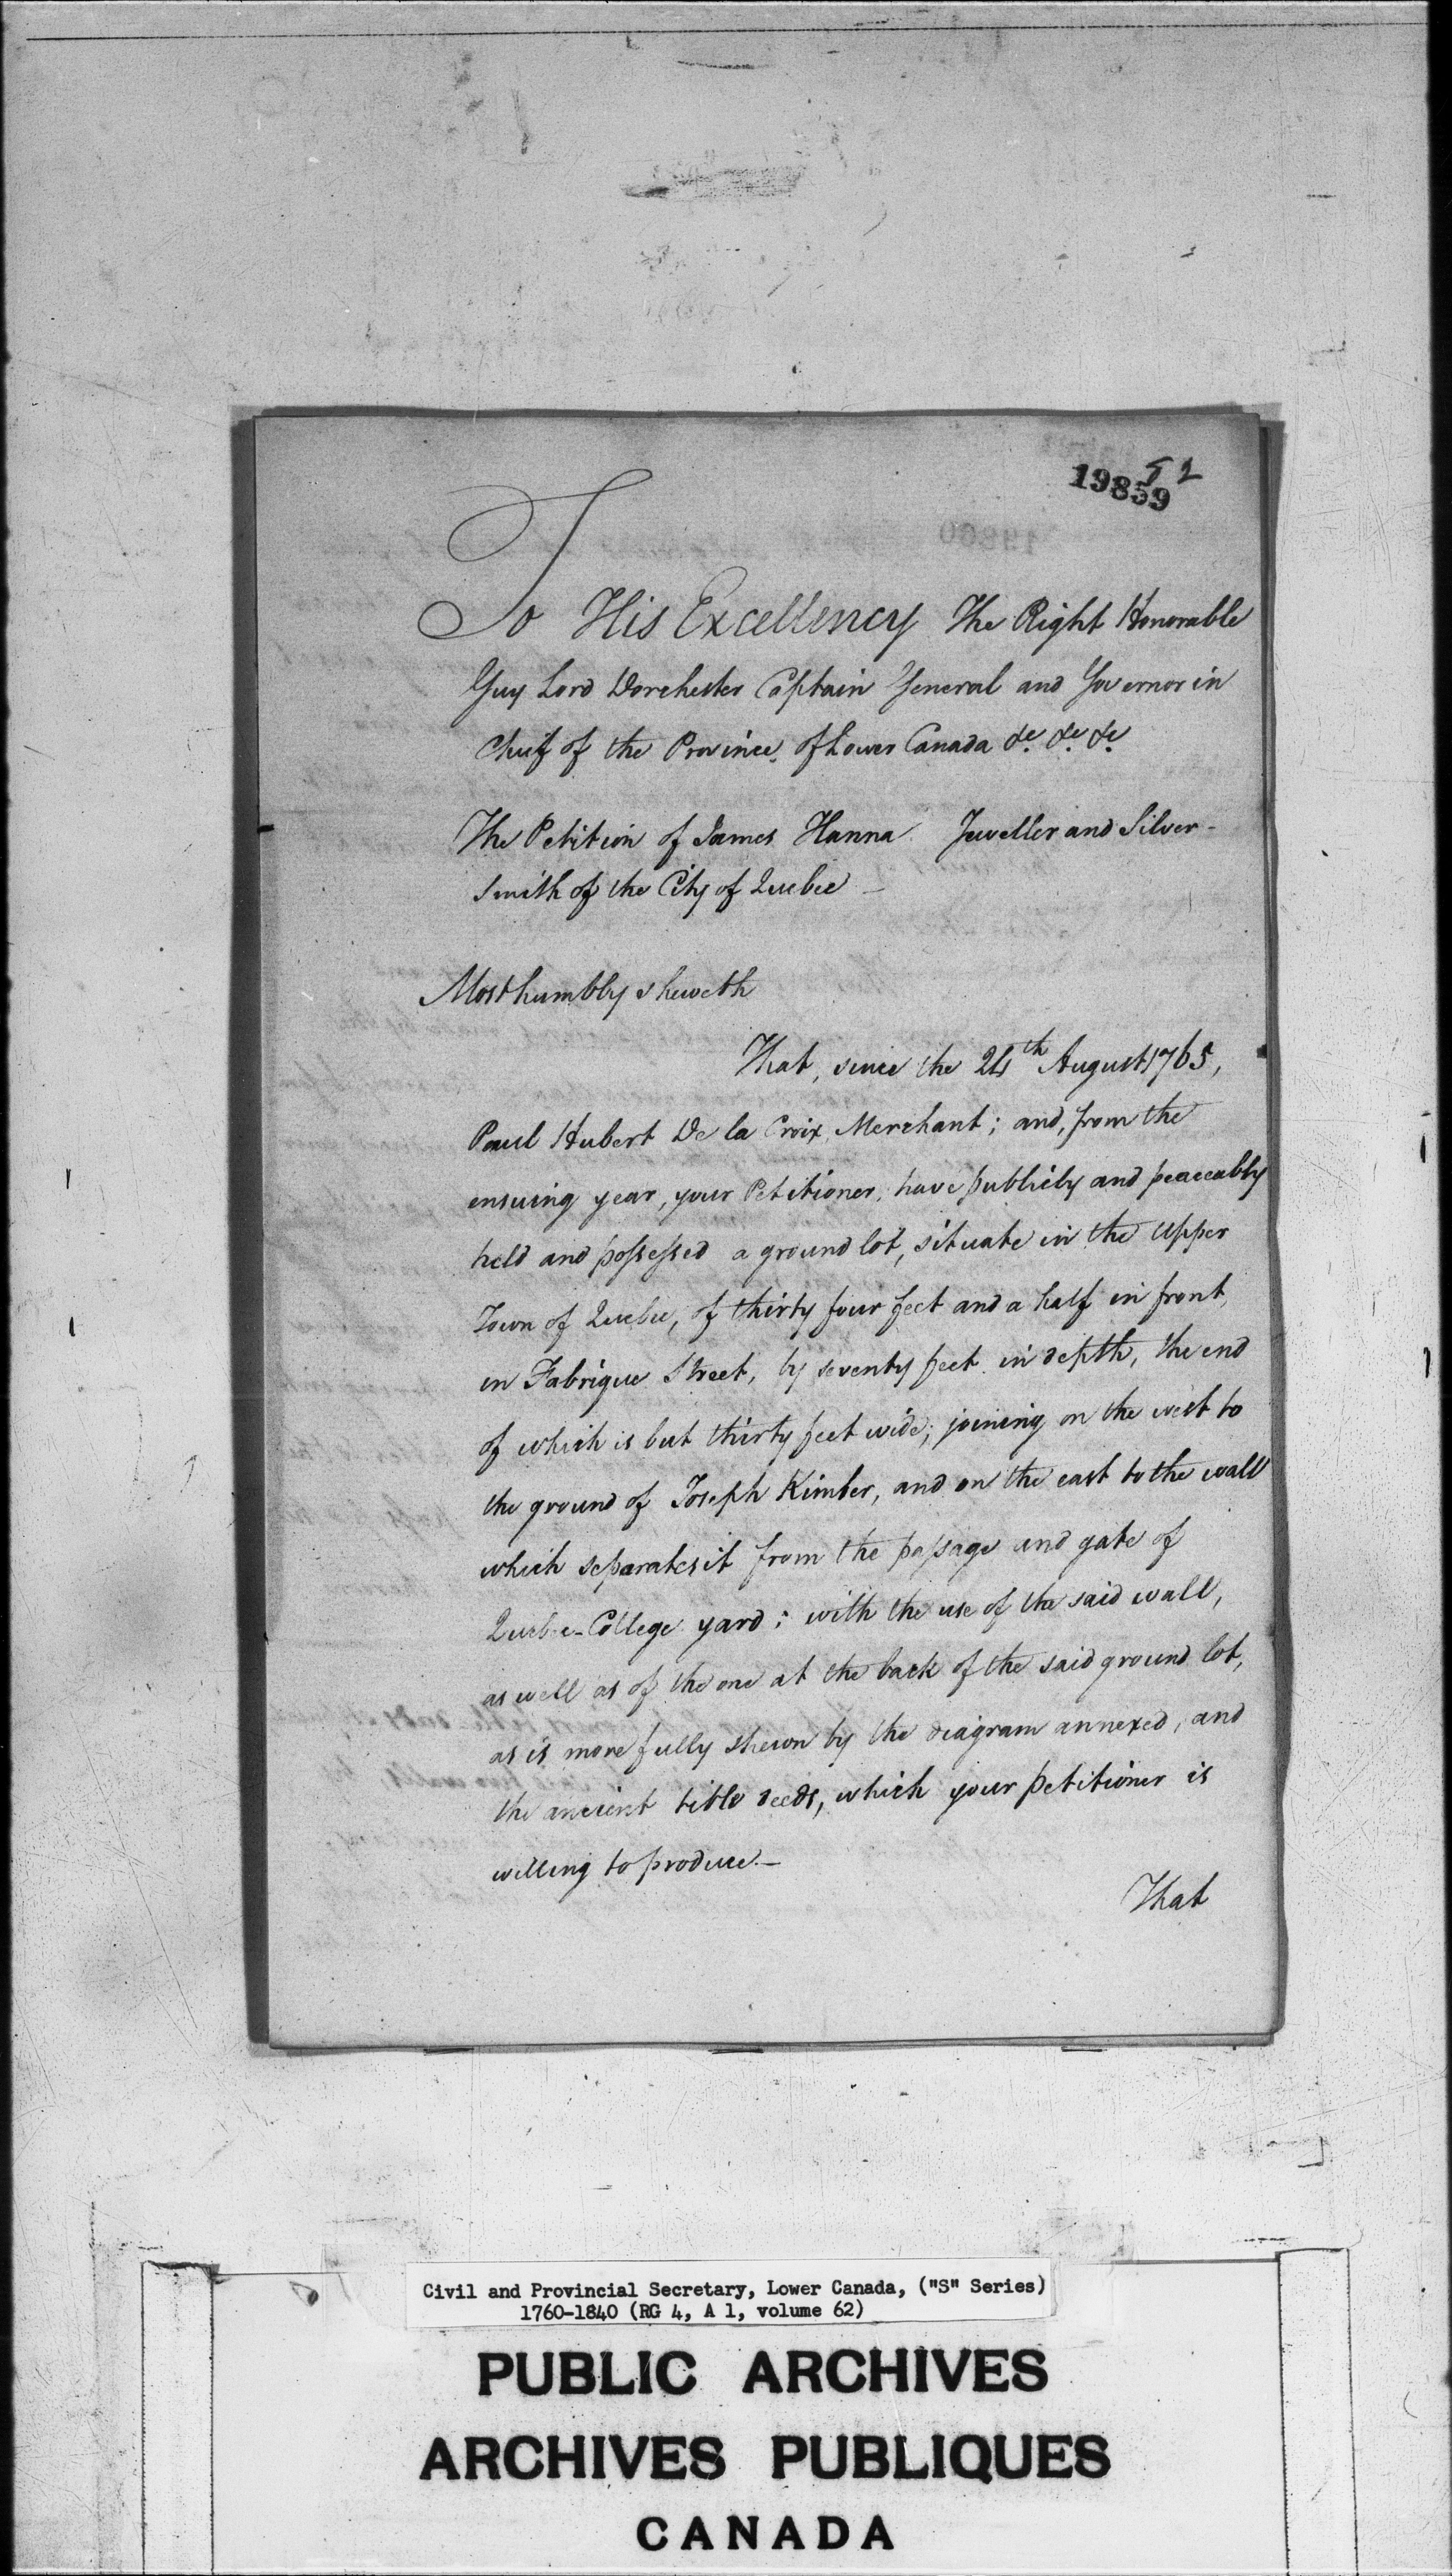 19859
52
To His Excellency The Right Honorable
Guy Lord Dorchester Captain General and Governor in
Chief of the Province of Lower Canada &c. &c. &c.
The Petition of James Hanna Jeweller and Silver-
smith of the City of Quebec —
Most humbly sheweth
That, since the 24th August 1765,
Paul Hubert De la Croix, Merchant; and, from the
ensuing year, your Petitioner, have publicly and peaceably
held and possessed a ground lot, situate in the Upper
Town of Quebec, of thirty four feet and a half in front,
in Fabrique Street, by seventy feet in depth, the end
of which is but thirty feet wide; joining on the west to
the ground of Joseph Kimber, and on the east to the wall
which separates it from the passage and gate of
Quebec-College yard; with the use of the said wall,
as well as of the one at the back of the said ground lot,
as is more fully shewn by the diagram annexed, and
the ancient title deeds, which your petitioner is
willing to produce.—
That
Civil and Provincial Secretary, Lower Canada, ("S" Series)
1760-1840 (RG 4, A 1, volume 62)
PUBLIC ARCHIVES
ARCHIVES PUBLIQUES
CANADA